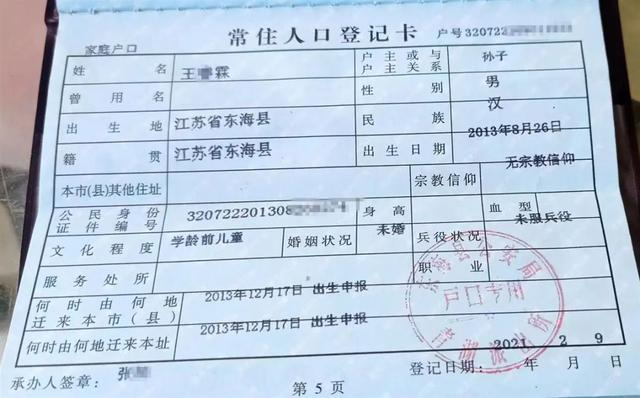 常住人口登记卡
家庭户口 户号320722
姓名 王 霖 户主或与户主关系 孙子
曾用名 性别 男
出生地 江苏省东海县 民族 汉
籍贯 江苏省东海县 出生日期 2013年8月26日
本市(县)其他住址 宗教信仰 无宗教信仰
公民身份证件编号 32072220130 身高 血型
文化程度 学龄前儿童 婚姻状况 未婚 兵役状况 未服兵役
服务处所 职业
何时由何地迁来本市(县) 2013年12月17日 出生申报
何时由何地迁来本址 2013年12月17日 出生申报
县公安局
户口专用
派出所
2021 2 9
承办人签章: 张 登记日期: 年 月 日
第 5 页